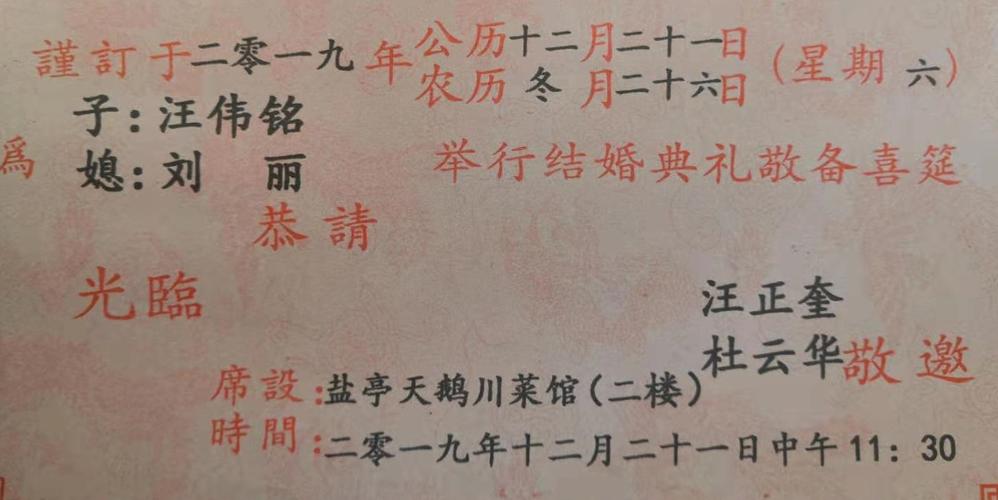 謹訂于二零一九年公历十二月二十一日（星期六）
农历冬月二十六日
子：汪伟铭
爲 媳：刘 丽 举行结婚典礼敬备喜筵
恭請
光臨
汪正奎
杜云华敬邀
席設：盐亭天鹅川菜馆（二楼）
時間：二零一九年十二月二十一日中午11：30